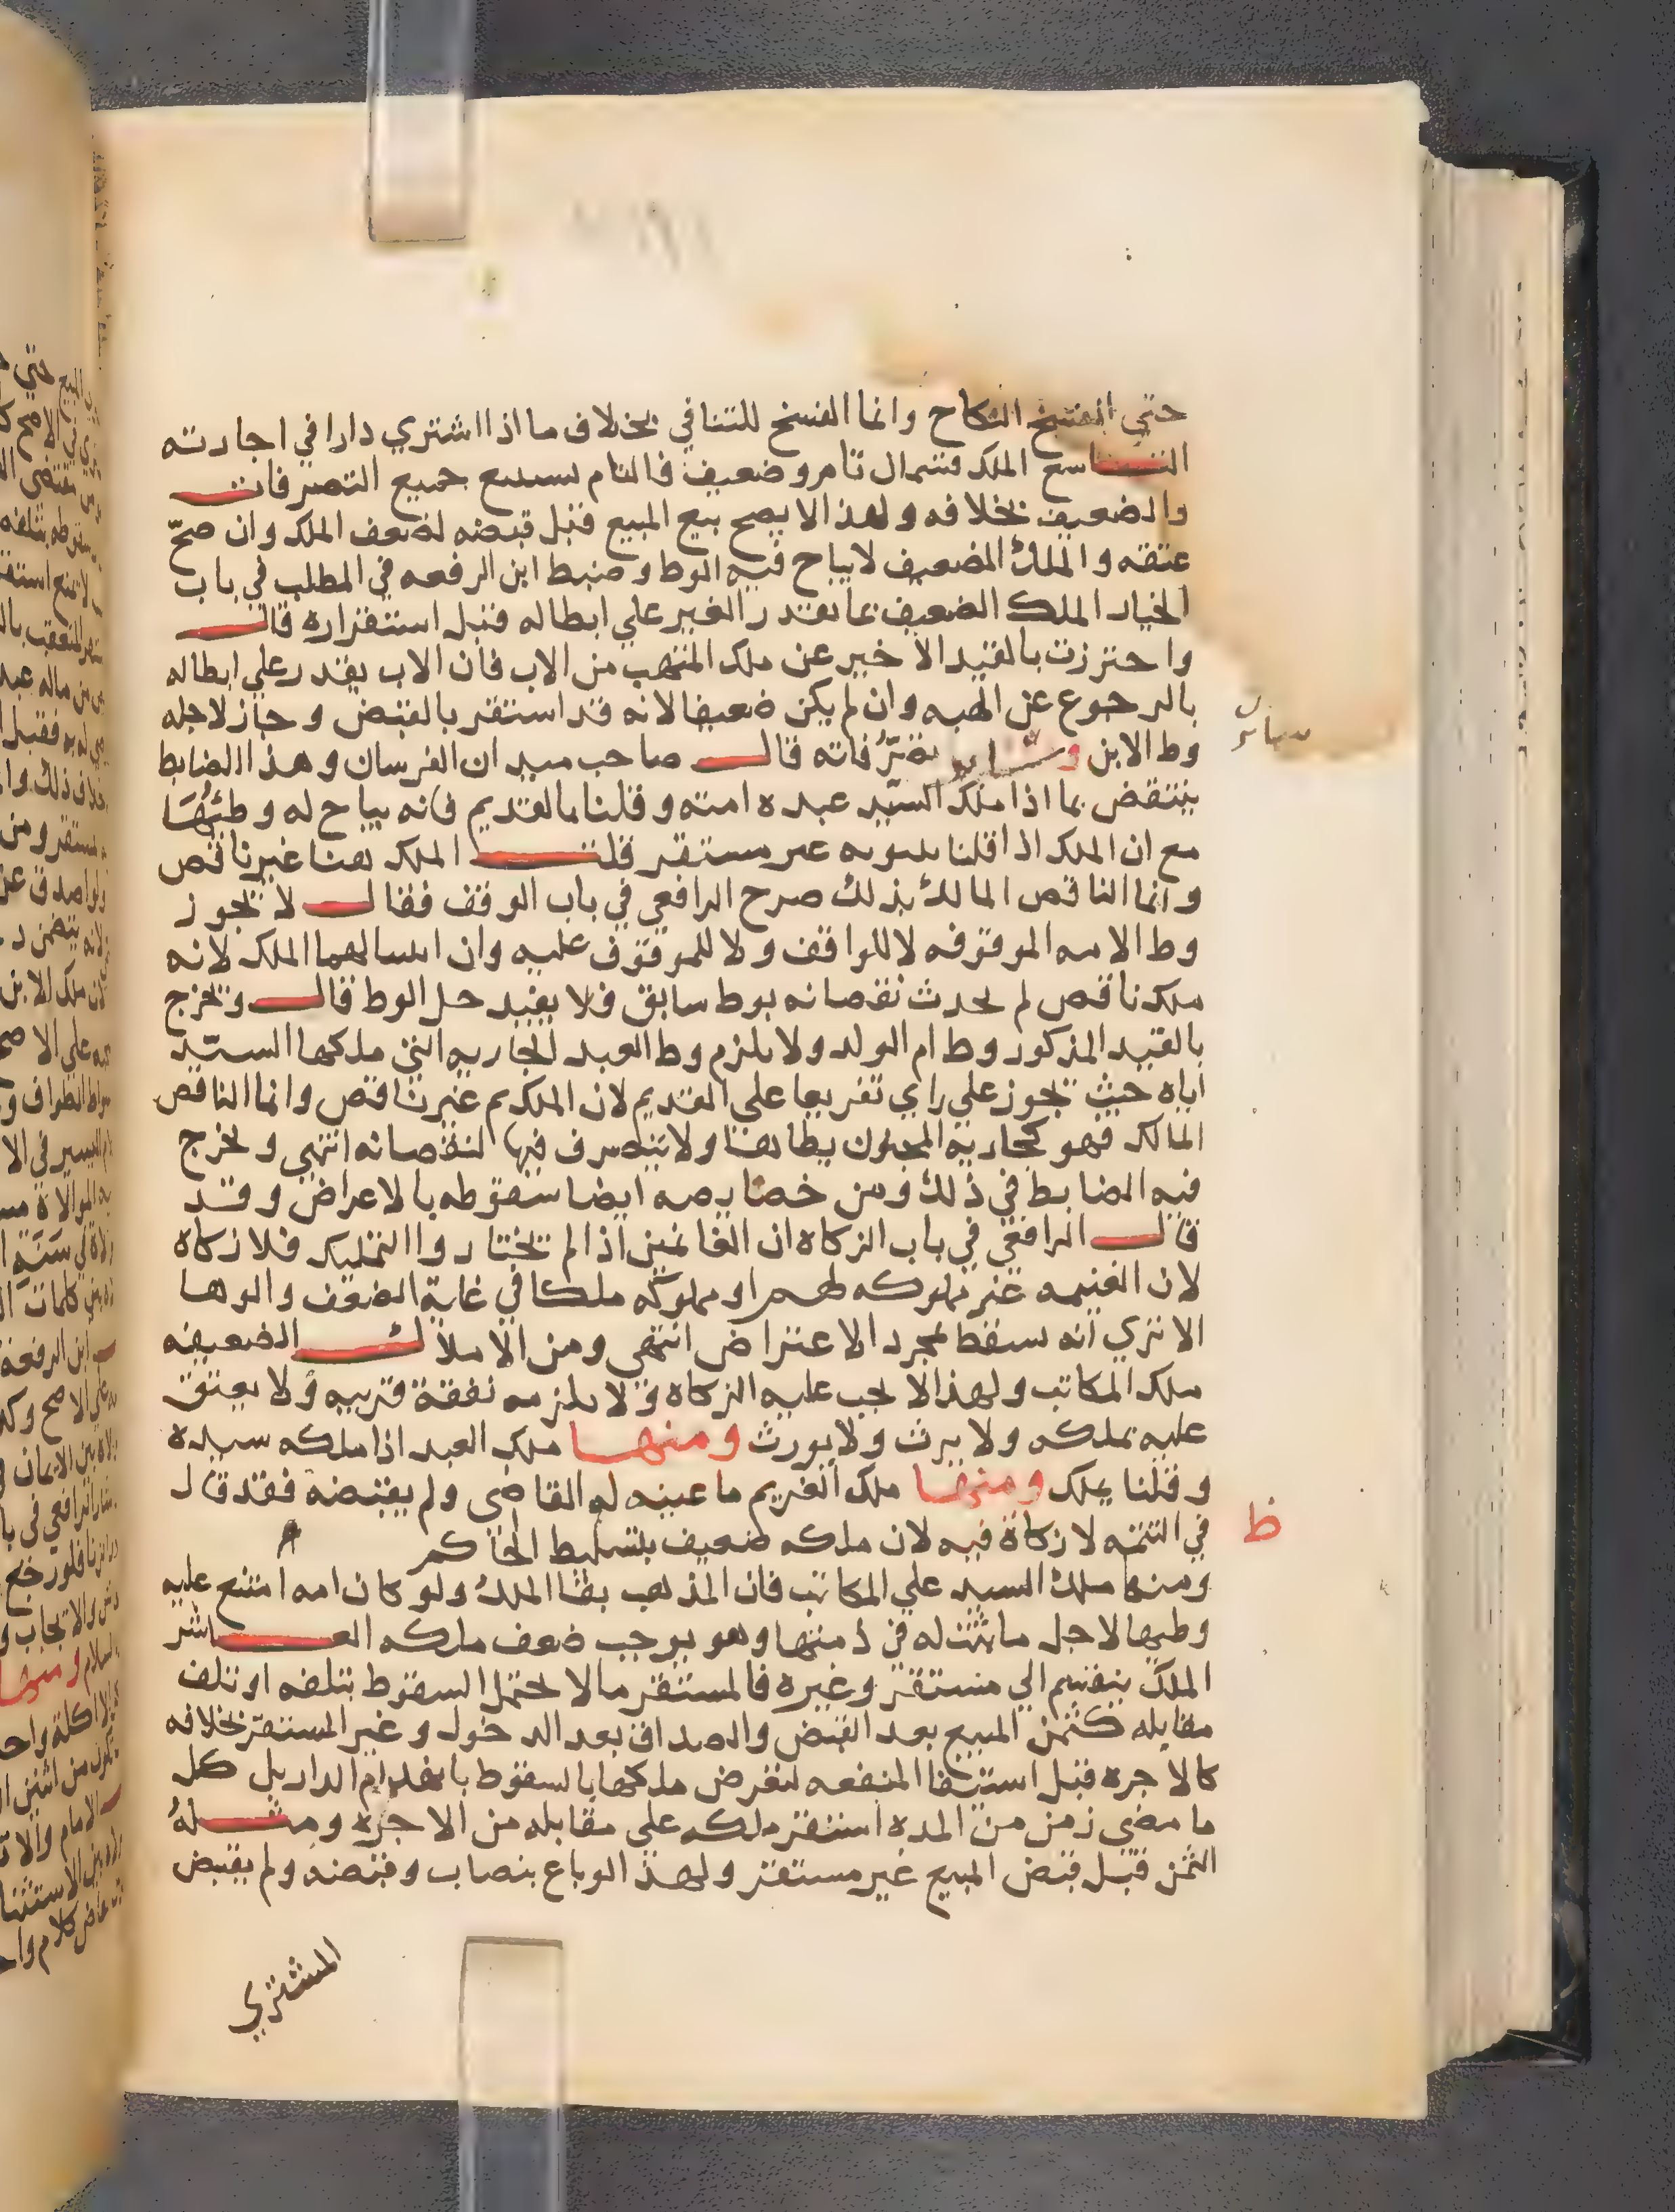 حتي انفسخ النكاح وانما الفسخ للتنافي بخلاف ما اذا اشتري دارا في اجارته
التاسع الملك قسمان تام وضعيف فالتام يستبيع جميع التصرفات
والضعيف بخلافه ولهذا لا يصح بيع المبيع قبل قبضه لضعف الملك وان صحّ
عتقه والملك الضعيف لا يباح فيه الوط وضبط ابن الرفعه في المطلب في باب
الخيار الملك الضعيف بما يقدر الغير علي ابطاله قبل استقراره قال
واحترزت بالقيد الاخير عن ملك المتهب من الاب فان الاب يقدر علي ابطاله
بالرجوع عن الهبه وان لم يكن ضعيفا لانه قد استقر بالقبض وجاز لاجله
وط الابن وساير تصرّفاته قال صاحب ميدان الفرسان وهذا الضابط
ينتقض بما اذا ملك السيّد عبده امته وقلنا بالقديم فانه يباح له وطئها
مع ان الملك اذا قلنا بثبوته غير مستقر قلت الملك هنا غير ناقص
وانما الناقص المالك بذلك صرح الرافعي في باب الوقف فقال لا يجوز
وط الامه الموقوفه لا للواقف ولا للموقوف عليه وان اثبتنا لهما الملك لانه
ملك ناقص لم يحدث نقصانه بوط سابق فلا يفيد حل الوط قال ويخرج
بالقيد المذكور وط ام الولد ولا يلزم وط العبد الجاريه التي ملكها السيّد
اياه حيث يجوز علي راي تفريعا علي القديم لان الملك ثم غير ناقص وانما الناقص
المالك فهو كجاريه المجنون يطاها ولا يتصرف فيها لنقصانه انتهي ويخرج
فيه الضابط في ذلك ومن خصايصه ايضا سقوطه بالاعراض وقد
قال الرافعي في باب الزكاه ان الغانمين اذا لم يختاروا التمليك فلا زكاة
لان الغنيمه غير مملوكه لهم او مملوكه ملكا في غاية الضعف والوها
الا تري انه يسقط بمجرد الاعتراض انتهي ومن الاملاك الضعيفه
ملك المكاتب ولهذا لا يجب عليه الزكاه ولا يلزمه نفقة قريبه ولا يعتق
عليه بملكه ولا يرث ولا يورث ومنها ملك العبد اذا ملكه سيده
وقلنا يملك ومنها ملك الغريم ما عينه له القاضي ولم يقبضه فقد قال
في التتمه لا زكاة فيه لان ملكه ضعيف بتسليط الحاكم
ومنها ملك السيد علي المكاتب فان المذهب بقا الملك ولو كان امه امتنع عليه
وطيها لاجل ما ثبت له في ذمتها وهو يوجب ضعف ملكه العاشر
الملك ينقسم الي مستقر وغيره فالمستقر ما لا يحتمل السقوط بتلفه او تلف
مقابله كثمن المبيع بعد القبض والصداق بعد الدخول وغير المستقرّ بخلافه
كالاجره قبل استيفا المنفعه لتعرض ملكها بالسقوط بانهدام الدار بل كل
ما مضي زمن من المده استقر ملكه علي مقابله من الاجره ومثله
الثمن قبل قبض المبيع غير مستقر ولهذا لو باع بنصاب وقبضه ولم يقبض
المشتري
ساير
ظ